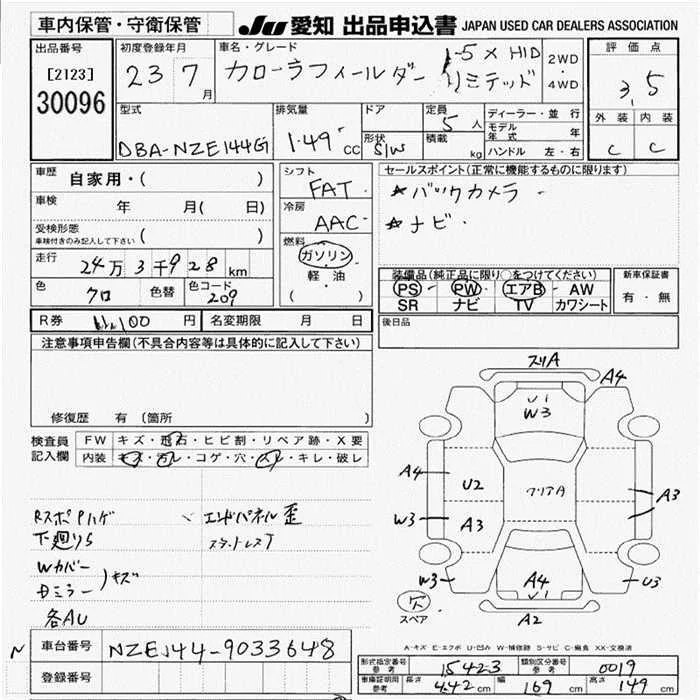 車内保管・守衛保管 JU 愛知 出品申込書 JAPAN USED CAR DEALERS ASSOCIATION
出品番号 [2123] 30096
初度登録年月 23 7月
車名・グレード カローラフィールダー 1-5 X HID リミテッド
2WD・4WD
評価点 3,5
外装 内装
C C
型式 DBA-NZE144G
排気量 1.49 cc
ドア
形状 S/W
定員 5人
積載 kg
ディーラー・並行
モデル年式 年
ハンドル 左・右
車歴 自家用・( )
車検 年 月( 日)
受検形態 車検付きのみ記入して下さい ( )
走行 24万3千928km
色 クロ 色替 色コード 209
シフト FAT
冷房 AAC
燃料 ガソリン
軽・油
( )
セールスポイント(正常に機能するものに限ります)
★バックカメラ
★ナビ
装備品(純正品に限り○をつけてください)
PS PW エアB AW
SR ナビ TV カワシート
新車保証書
有・無
R券 11,100円 名変期限 月 日
後日品
注意事項申告欄(不具合内容等は具体的に記入して下さい)
修復歴 有 (箇所 )
検査員記入欄
FW キズ・飛石・ヒビ割・リペア跡・X要
内装 キズ・汚レ・コゲ・穴・スレ・キレ・破レ
RスポPハゲ
下廻りS
Wカバー
Dミラー )キズ
各AU
エンドパネル歪
スタートレスT
スリA
A4
U1
W3
A4
U2
クリアA
A3
W3
A3
W3
A4
U1
U3
A2
欠
スペア
A-キズ E-エクボ U-凹み W-補修跡 S-サビ C-腐食 XX-交換済
N
車台番号 NZE144-9033648
登録番号
形式指定番号 参考 15423 類別区分番号 参考 0019
車庫証明用 参考 長さ 442cm 幅 169cm 高さ 149cm